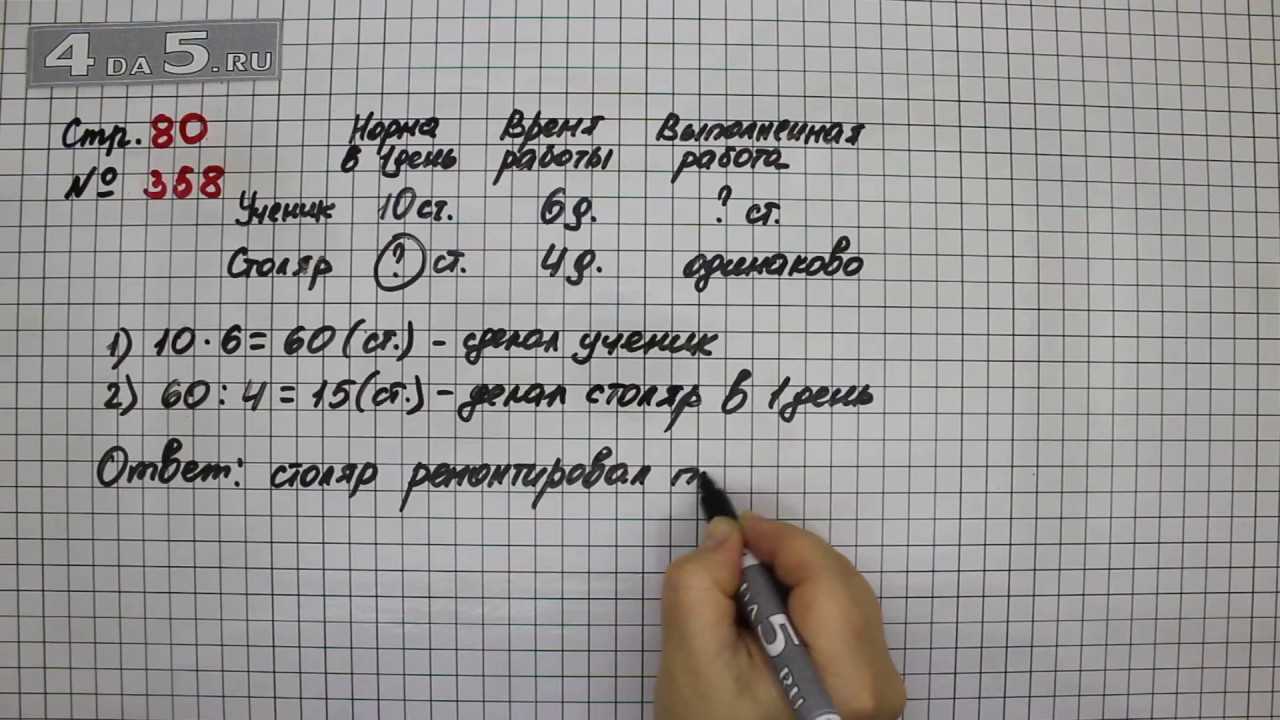 4 DA 5.RU
Стр. 80
№ 358
Норма Время Выполненная
в 1 день работы работа
Ученик 10 ст. 6 д. ? ст.
Столяр ? ст. 4 д. одинаково
1) 10 · 6 = 60 (ст.) - сделал ученик
2) 60 : 4 = 15 (ст.) - делал столяр в 1 день
Ответ: столяр ремонтировал п
5 RU